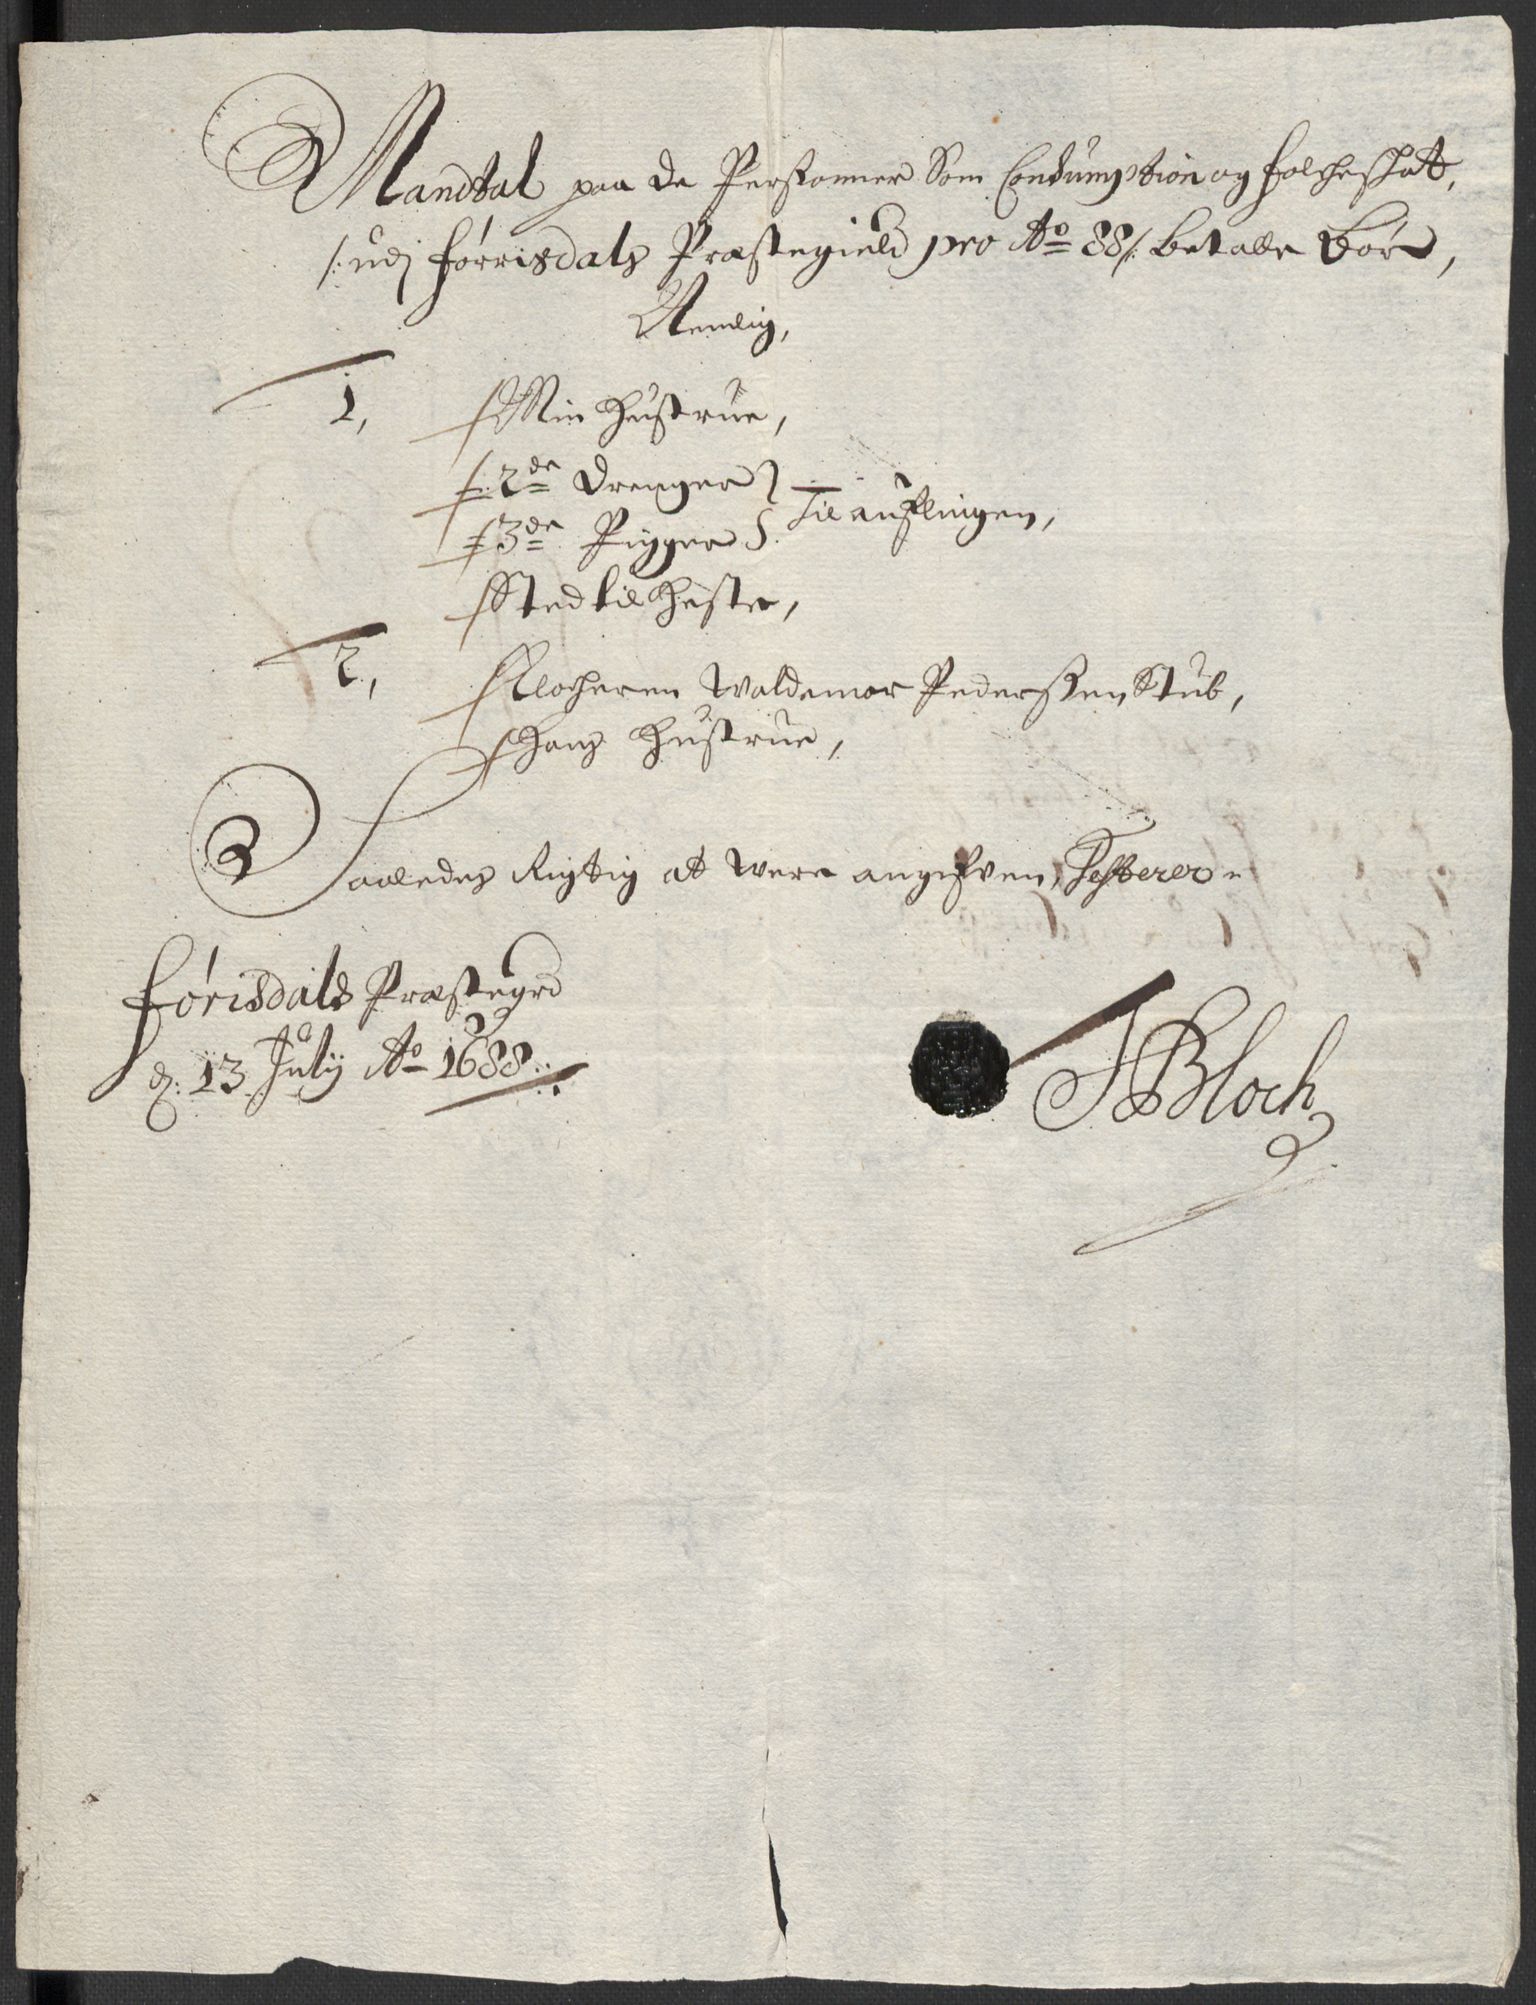 Mandtal paa de Persśonner Som Consumption og folcheskat,
/: udj førrisdals Præstegield pro Aº 88 /: betale bør,
Nemlig,
1, Min Hustrue,
2de Drenger
3de Pigger } til auflingen,
Sted til Heste,
2, Klocheren Waldemor Pederssen Stub,
Hans Hustrue,
Saaledes Rigtig at were angifven, Testerer
førisdals Præstegrd
d: 13 July Aº 1688
J Bloch